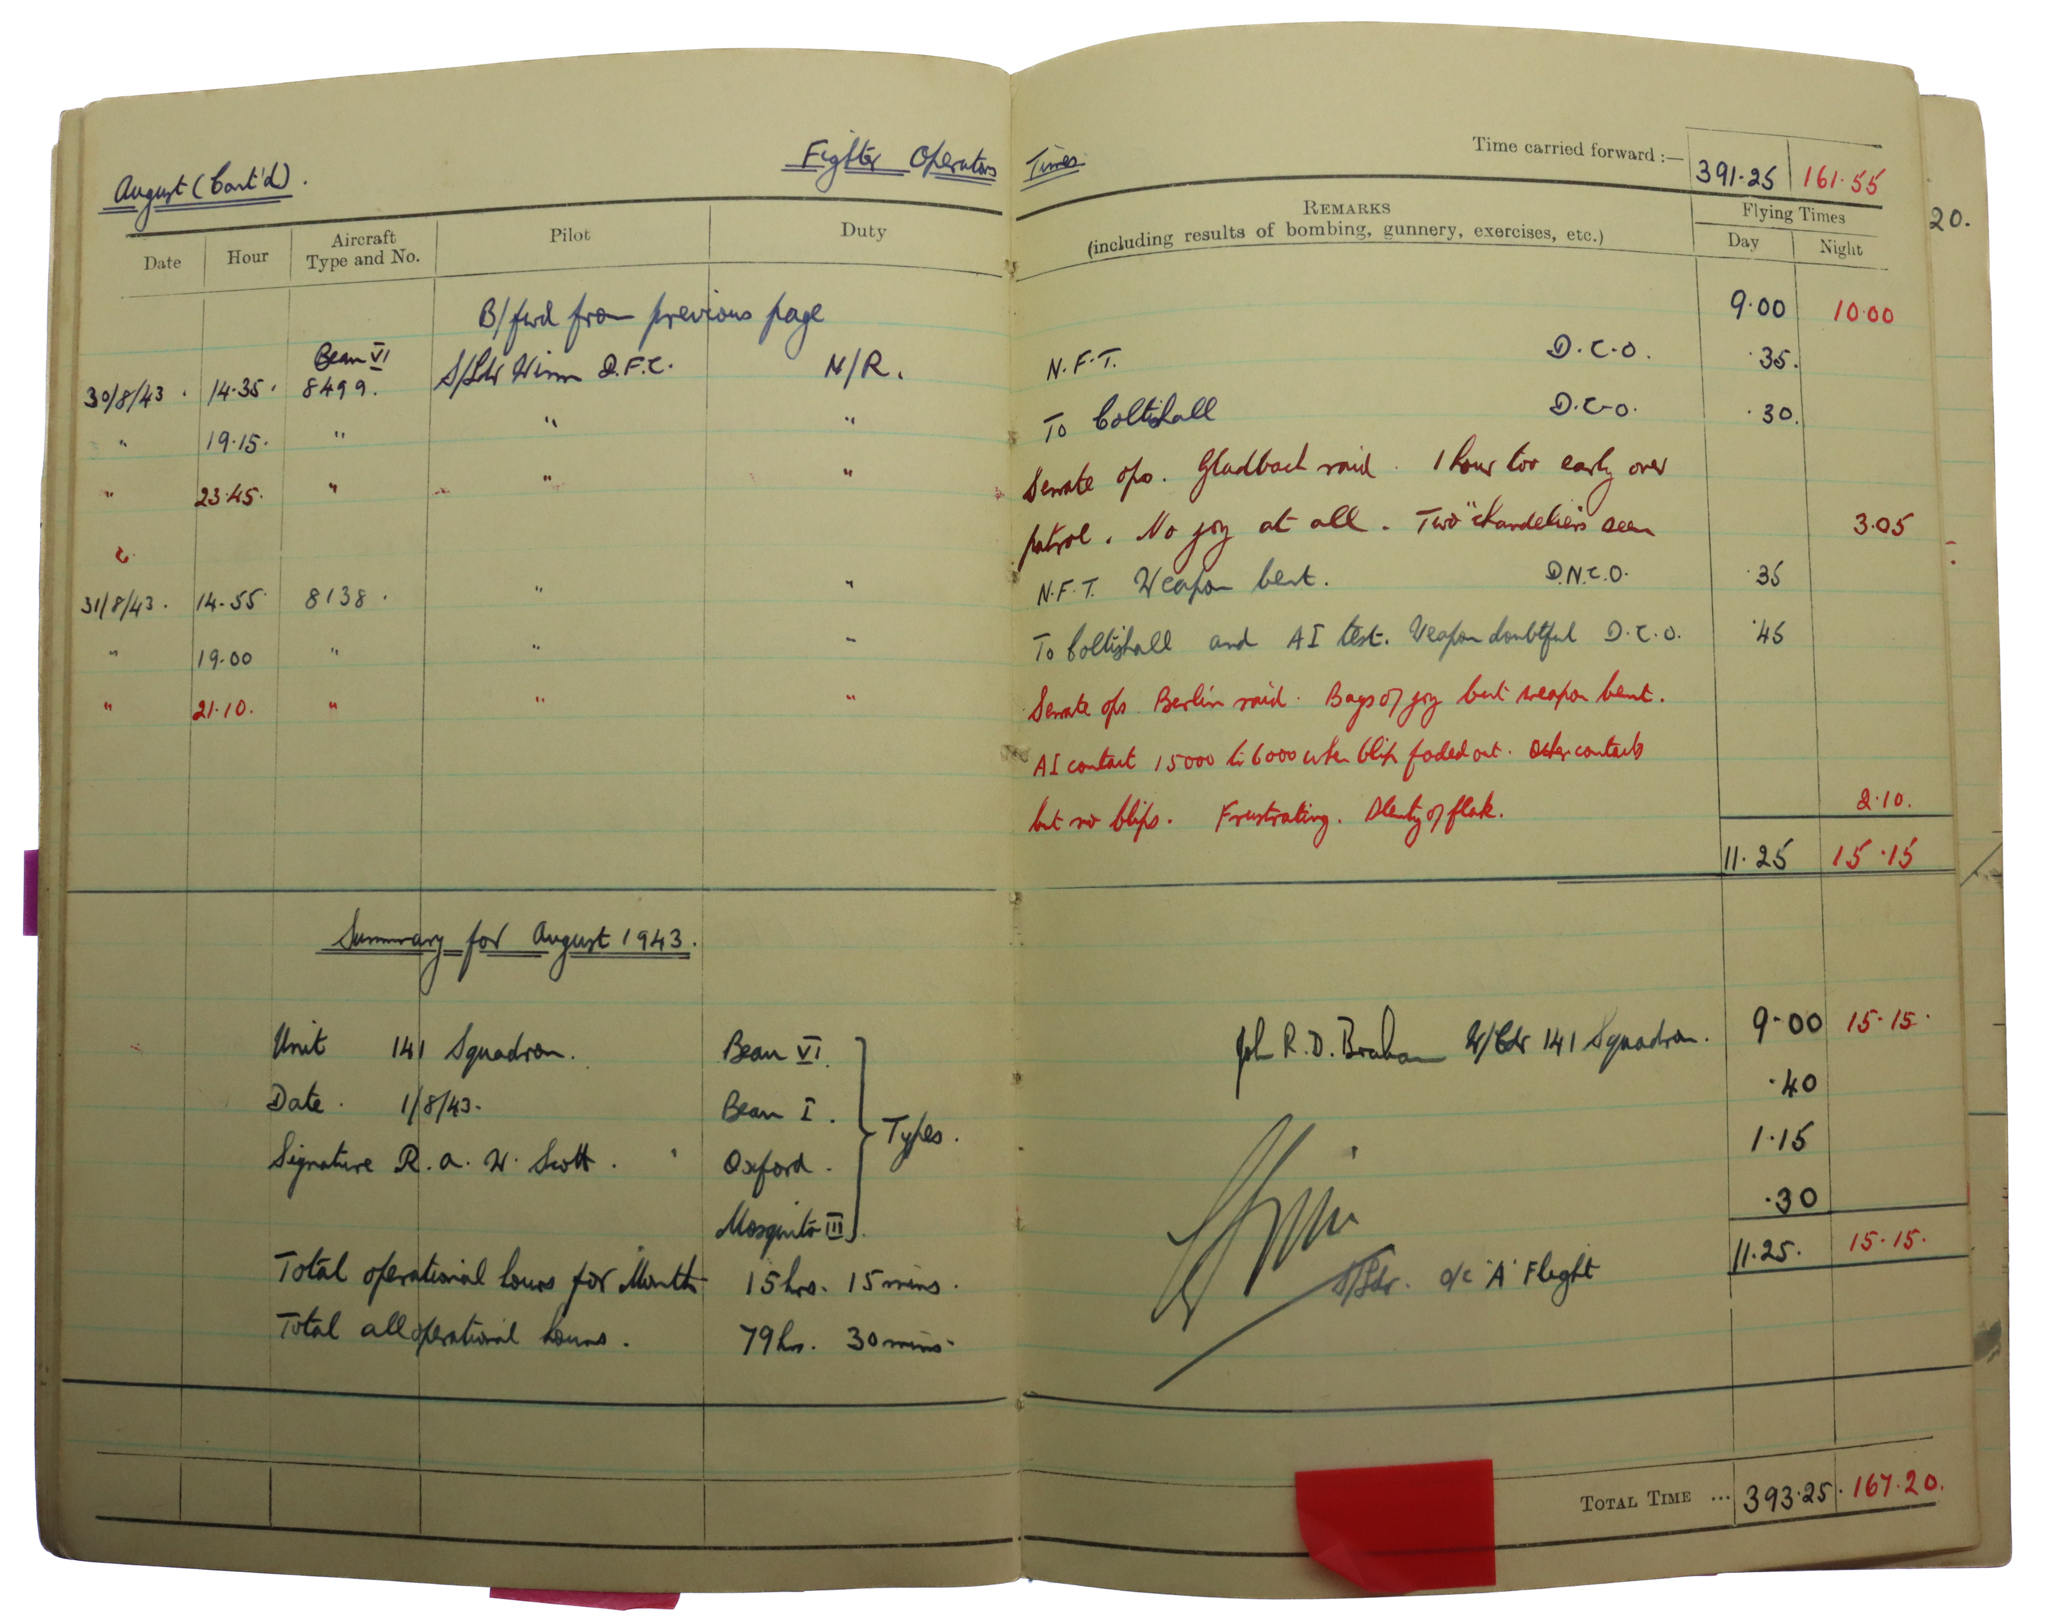 August (Cont'd).
Fighter Operators Times
Time carried forward :— 391.25 161.55
20.
Date Hour Aircraft Type and No. Pilot Duty
REMARKS
(including results of bombing, gunnery, exercises, etc.)
Flying Times
Day Night
B/fwd from previous page 9.00 10.00
Beau VI
30/8/43 . 14.35. 8499. S/Ldr Winn D.F.C. N/R. N.F.T. D.C.O. .35.
" 19.15. " " " To Coltishall D.C.O. .30.
" 23.45. " " " Serrate ops. Gladbach raid. 1 hour too early over
patrol. No joy at all. Two "chandeliers seen 3.05
31/8/43. 14.55 8138. " " N.F.T. Weapon bent. D.N.C.O. .35
" 19.00 " " " To Coltishall and AI test. Weapon doubtful D.C.O. .45
" 21.10. " " " Serrate ops Berlin raid. Bags of joy but weapon bent.
AI contact 15000 to 6000 when blip faded out. Other contacts
but no blips. Frustrating. Plenty of flak. 2.10.
11.25 15.15
Summary for August 1943.
Unit 141 Squadron. Beau VI. John R.D. Braham W/Cdr 141 Squadron. 9.00 15.15.
Date. 1/8/43. Beau I. .40
Types.
Signature R.A.W. Scott. Oxford. 1.15
Mosquito III. .30
11.25. 15.15.
Total operational hours for Month 15hrs. 15mins.
S/Ldr. o/c 'A' Flight
Total all operational hours. 79hrs. 30mins.
TOTAL TIME ... 393.25. 167.20.